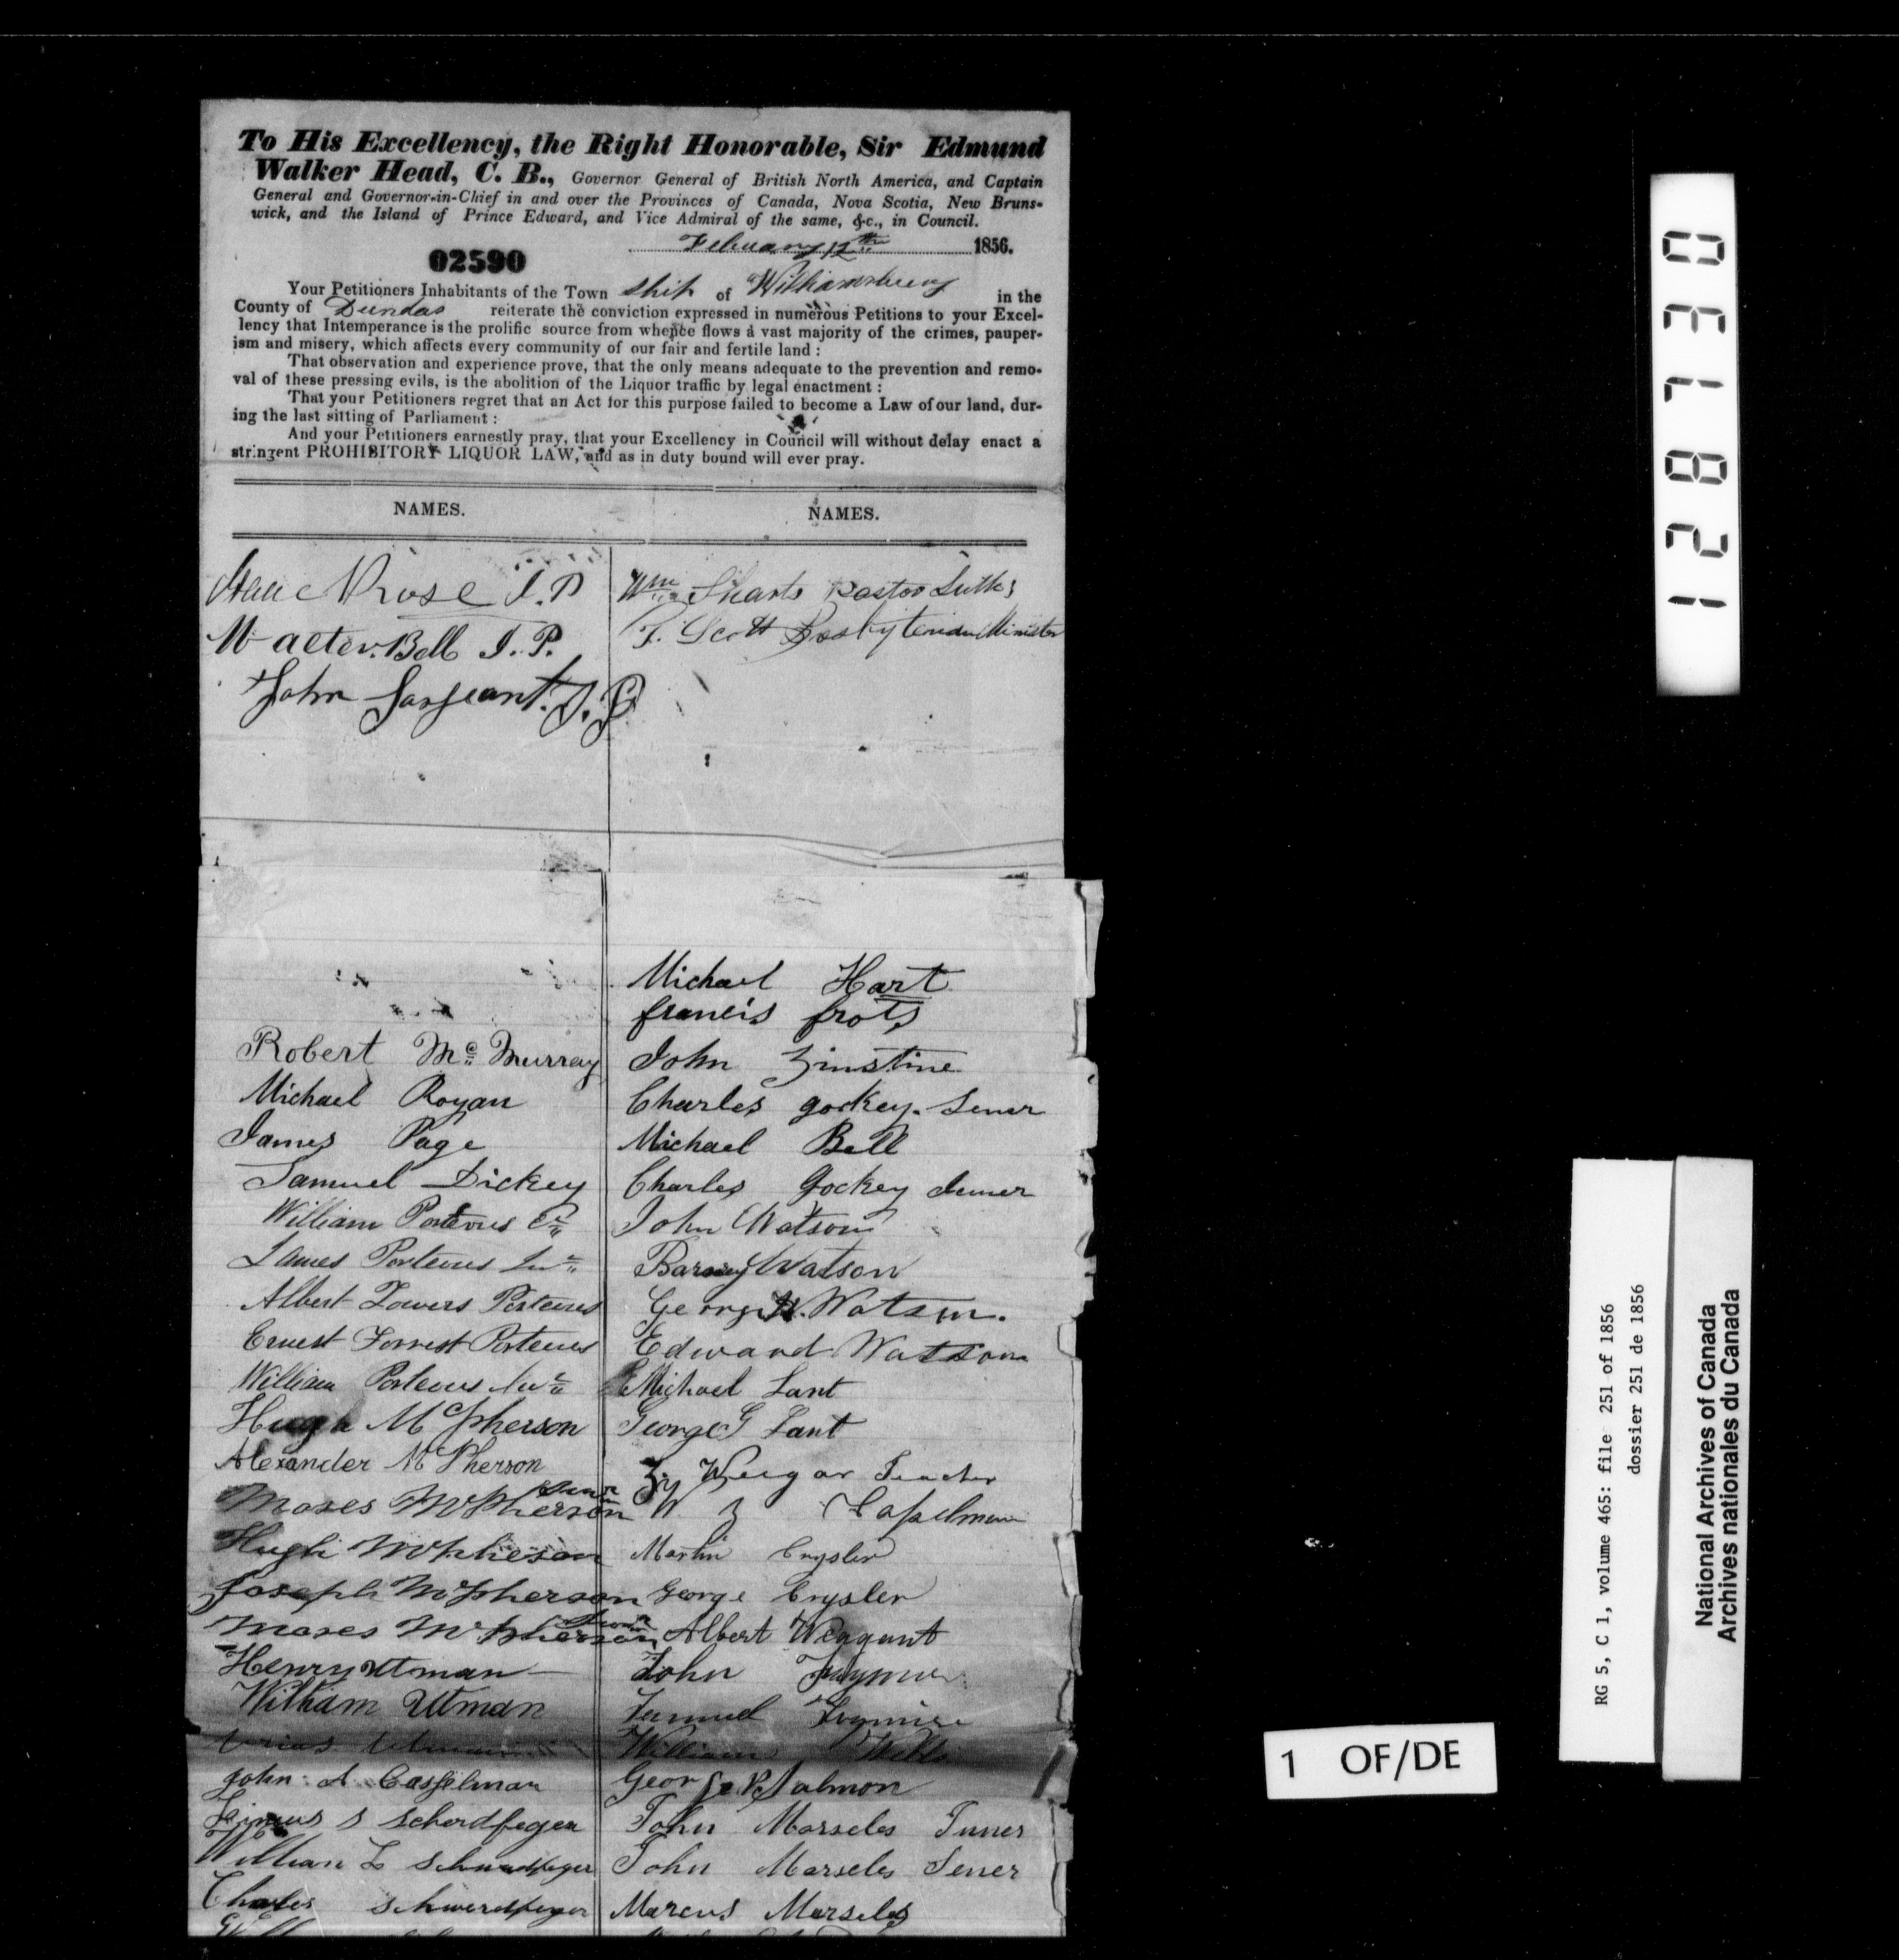 To His Excellency, the Right Honorable, Sir Edmund
Walker Head, C. B., Governor General of British North America, and Captain
General and Governor-in-Chief in and over the Provinces of Canada, Nova Scotia, New Bruns-
wick, and the Island of Prince Edward, and Vice Admiral of the same, &c., in Council.
February 12th 1856.
02590
Your Petitioners Inhabitants of the Town ship of Williamsburg in the
County of Dundas reiterate the conviction expressed in numerous Petitions to your Excel-
lency that Intemperance is the prolific source from whence flows a vast majority of the crimes, pauper-
ism and misery, which affects every community of our fair and fertile land :
That observation and experience prove, that the only means adequate to the prevention and remo-
val of these pressing evils, is the abolition of the Liquor traffic by legal enactment :
That your Petitioners regret that an Act for this purpose failed to become a Law of our land, dur-
ing the last sitting of Parliament :
And your Petitioners earnestly pray, that your Excellency in Council will without delay enact a
stringent PROHIBITORY LIQUOR LAW, and as in duty bound will ever pray.
NAMES.
Rose J.P
Walter Bell J.P.
John Sargeant J.P
Robert Mc Murray
Michael Royan
James Page
Samuel Dickey
William Porteous
James Porteous
Albert Towers Porteous
Ernest Forrest Porteous
William Porteous
Hugh McPherson
Alexander McPherson
Moses McPherson
Hugh McPheson
Joseph McPherson
Moses McPherson
Henry Utman
William Utman
John A Casselman
S Schordfeger
William L
Charles Schwerdfeger
NAMES.
Wm Sharts Pastor Luth
T. Scott Presbyterian Minister
Michael Hart
francis frots
John Zinstine
Charles gockey. Sener
Michael Bell
Charles Gockey Juner
John Watson
Barney Watson
George W. Watson.
Edward Watson
Michael Lant
George G Lant
Weegar Teacher
W Z Casselman
Martin Crysler
George Crysler
Albert Weagant
John
Samuel
William Webb
George P. Salmon
John Marseles Juner
John Marseles Sener
Marcus Marseles
128730
RG 5, C 1, volume 465: file 251 of 1856
dossier 251 de 1856
National Archives of Canada
Archives nationales du Canada
1 OF/DE